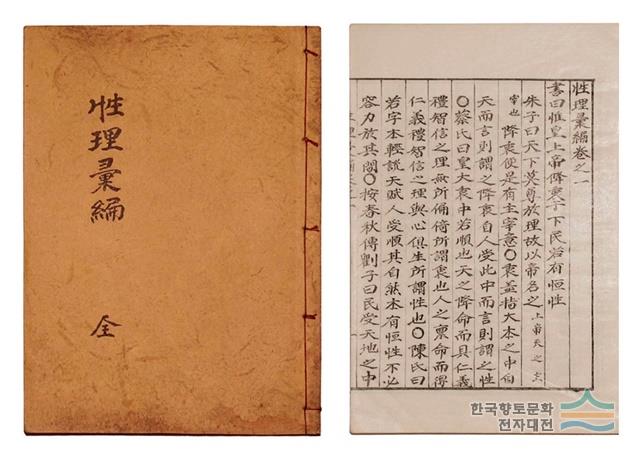 性理彙編
全
性理彙編卷之一
書曰惟皇上帝降衷于下民若有恒性
朱子曰天下莫尊於理故以帝名之上帝天之主
宰也 降衷便是有主宰意○衷盖指大本之中自
天而言則謂之降衷自人受此中而言則謂之性
○蔡氏曰皇大衷中若順也天之降命而具仁義
禮智信之理無所偏倚所謂衷也人之稟命而得
仁義禮智信之理與心俱生所謂性也○陳氏曰
若字本輕說天賦人受順其自然本有恒性不必
容力放其間○按春秋傳劉子曰民受天地之中
한국향토문화
전자대전